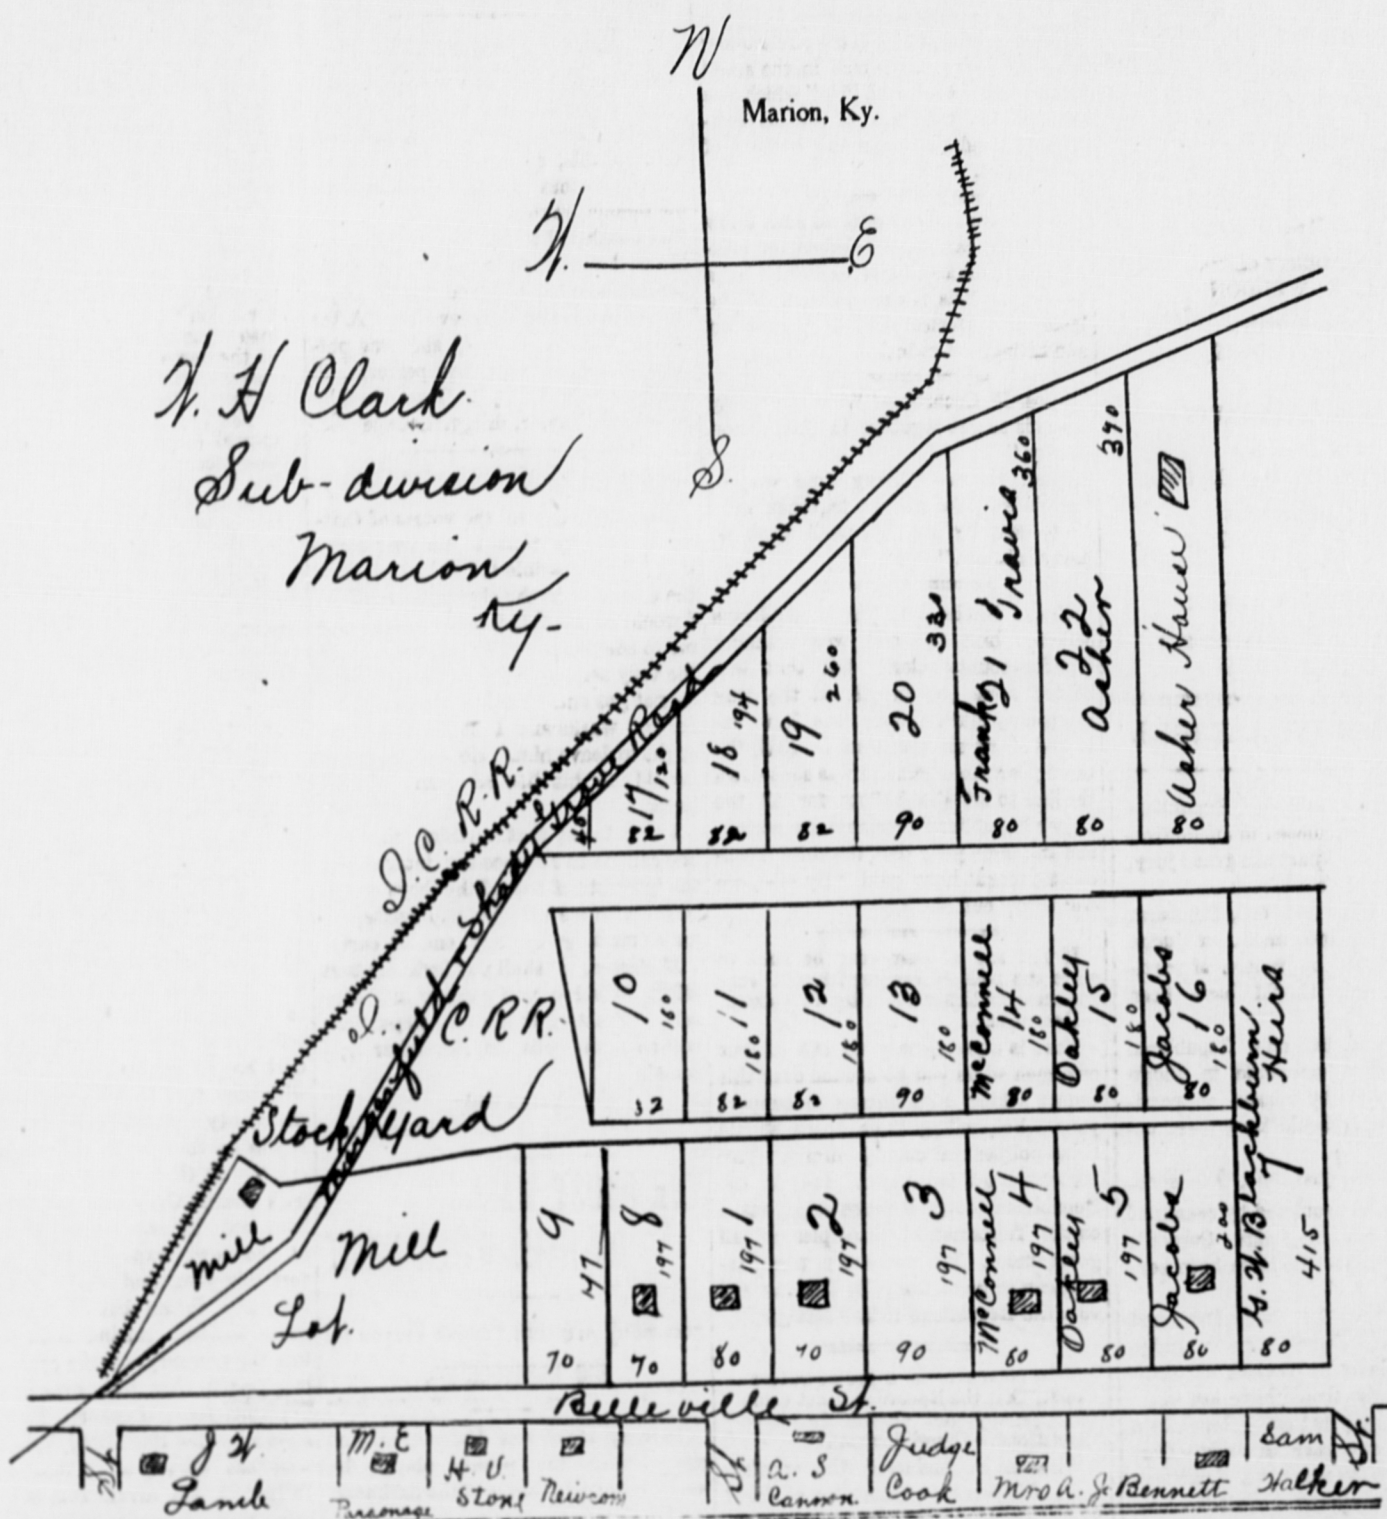 N
Marion, Ky.
W.
E
S.
W. H Clark
Sub-division
Marion
Ky-
I.C. R.R.
Shady Grove Road
I. C. R R.
Stock Yard
Mill
Mill
Lot.
40
17
120
82
18
194
82
19
260
82
20
330
90
Frank Travis
21
360
80
22
Asher
390
80
Asher House
80
10
180
32
11
180
82
12
180
82
13
180
90
McConnell
14
180
80
Oakley
15
180
80
Jacobs
16
180
80
9
47
70
8
197
70
1
197
80
2
197
70
3
197
90
McConnell
4
197
80
Oakley
5
197
80
Jacobs
200
80
G. W. Blackburn
Heirs
7
415
80
Belleville St.
St
J W.
Lamb
M. E
Parsonage
H. V.
Stone
Newcom
St
A. S
Cannon
Judge
Cook
Mrs A. J. Bennett
Sam
Walker
St.